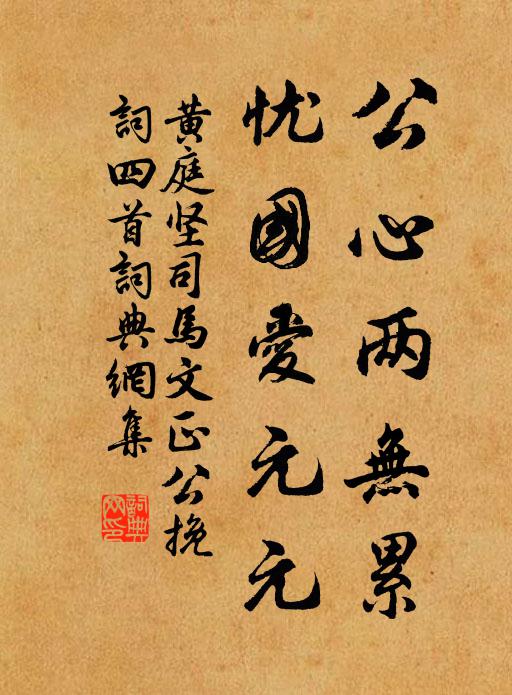 公心两無累
忧國愛元元
黄庭坚司馬文正公挽
詞四首詞典網集
詞典
网印